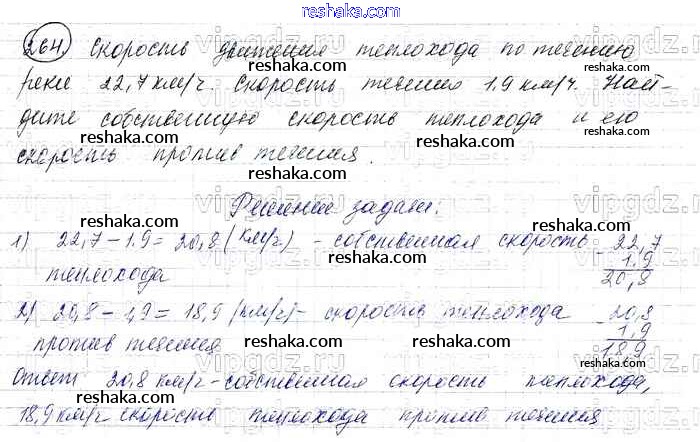 reshaka.com
264. Скорость движения теплохода по течению
реки 22,7 км/ч. Скорость течения 1,9 км/ч. Най-
дите собственную скорость теплохода и его
скорость против течения.
Решение задачи:
1) 22,7 - 1,9 = 20,8 (км/ч) - собственная скорость
теплохода
- 22,7
1,9
20,8
2) 20,8 - 1,9 = 18,9 (км/ч) - скорость теплохода
против течения
- 20,8
1,9
18,9
Ответ 20,8 км/ч - собственная скорость теплохода,
18,9 км/ч скорость теплохода против течения